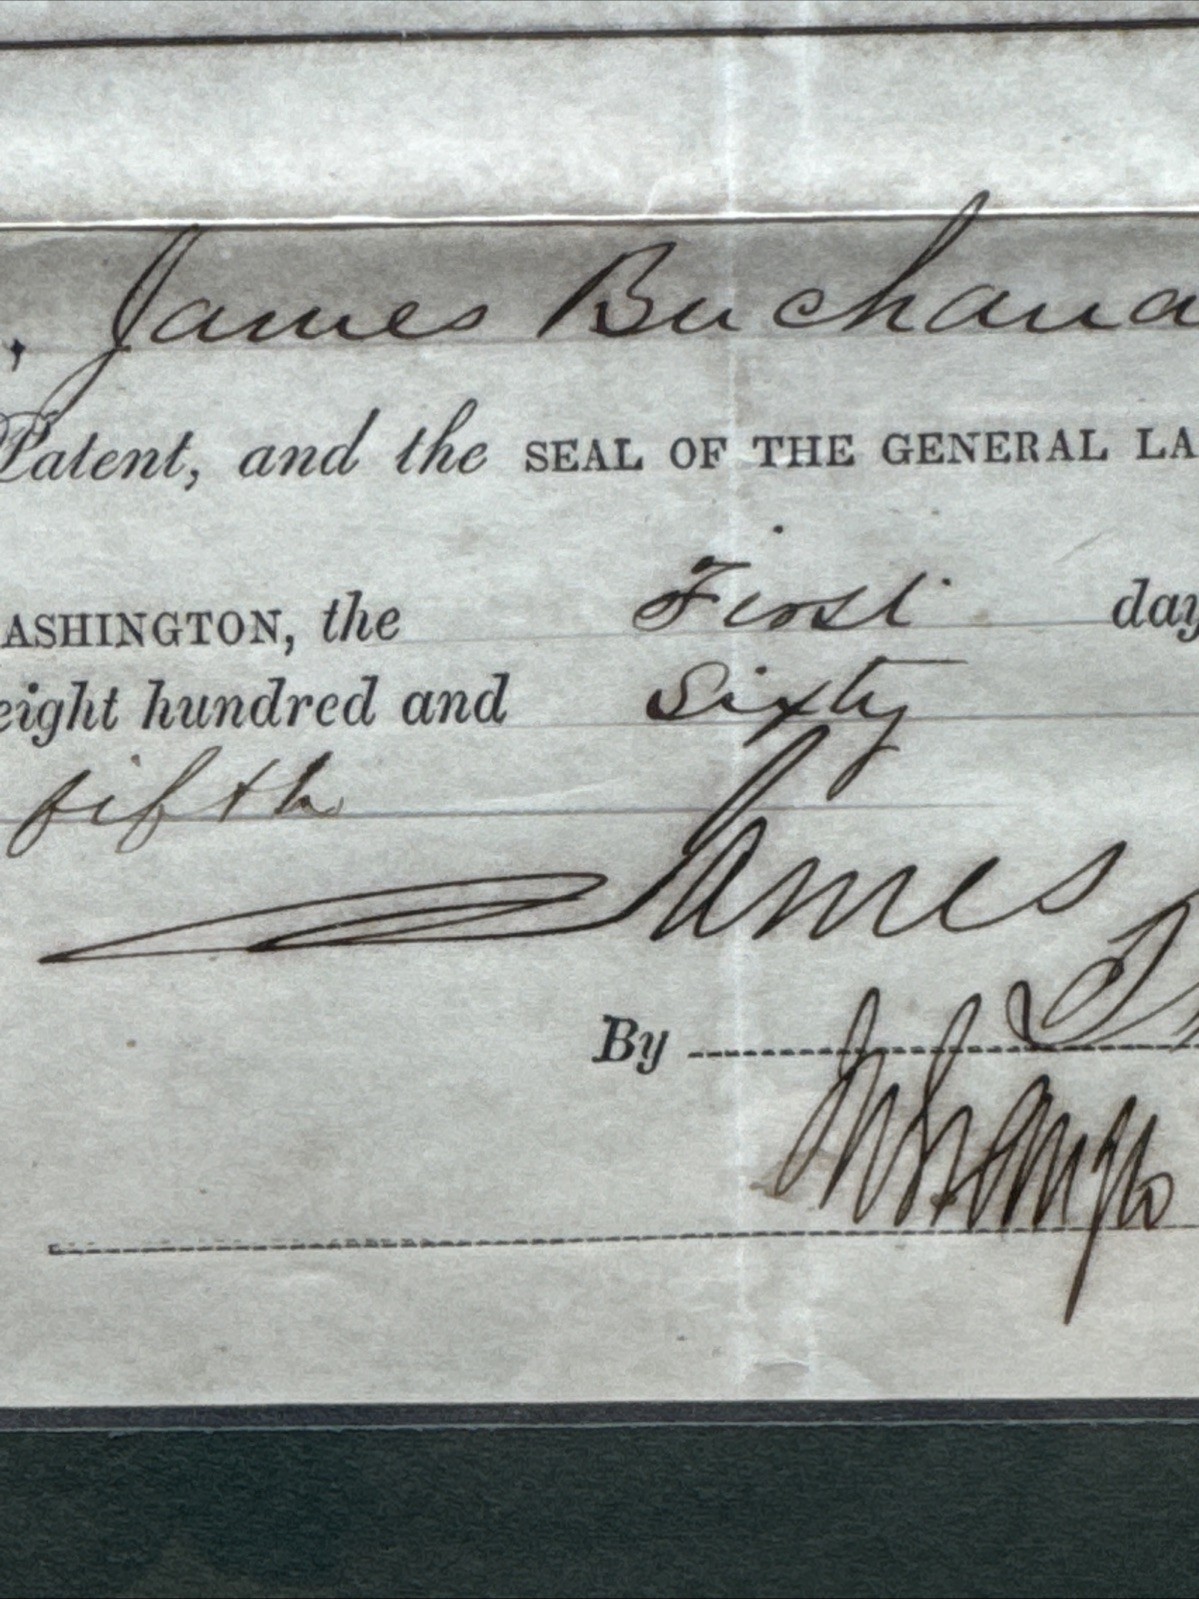 , James Buchana
Patent, and the SEAL OF THE GENERAL LA
ASHINGTON, the First day
eight hundred and Sixty
fifth
James
By